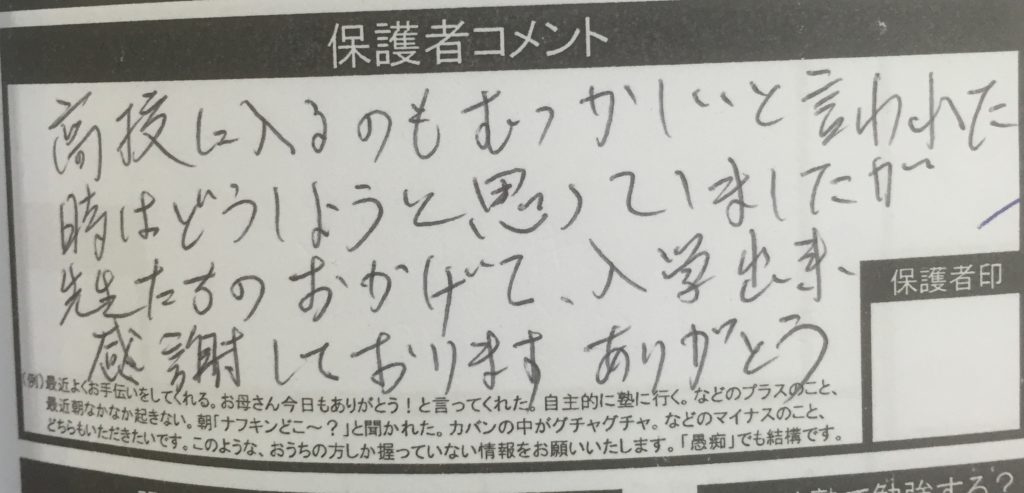 保護者コメント
高校に入るのもむつかしいと言われた
時はどうしようと思っていましたが
先生たちのおかげで、入学出来、
感謝しております ありがとう
保護者印
(例)最近よくお手伝いをしてくれる。お母さん今日もありがとう！と言ってくれた。自主的に塾に行く。などのプラスのこと、
最近朝なかなか起きない。朝「ナフキンどこ～？」と聞かれた。カバンの中がグチャグチャ。などのマイナスのこと、
どちらもいただきたいです。このような、おうちの方しか握っていない情報をお願いいたします。「愚痴」でも結構です。
勉強する？